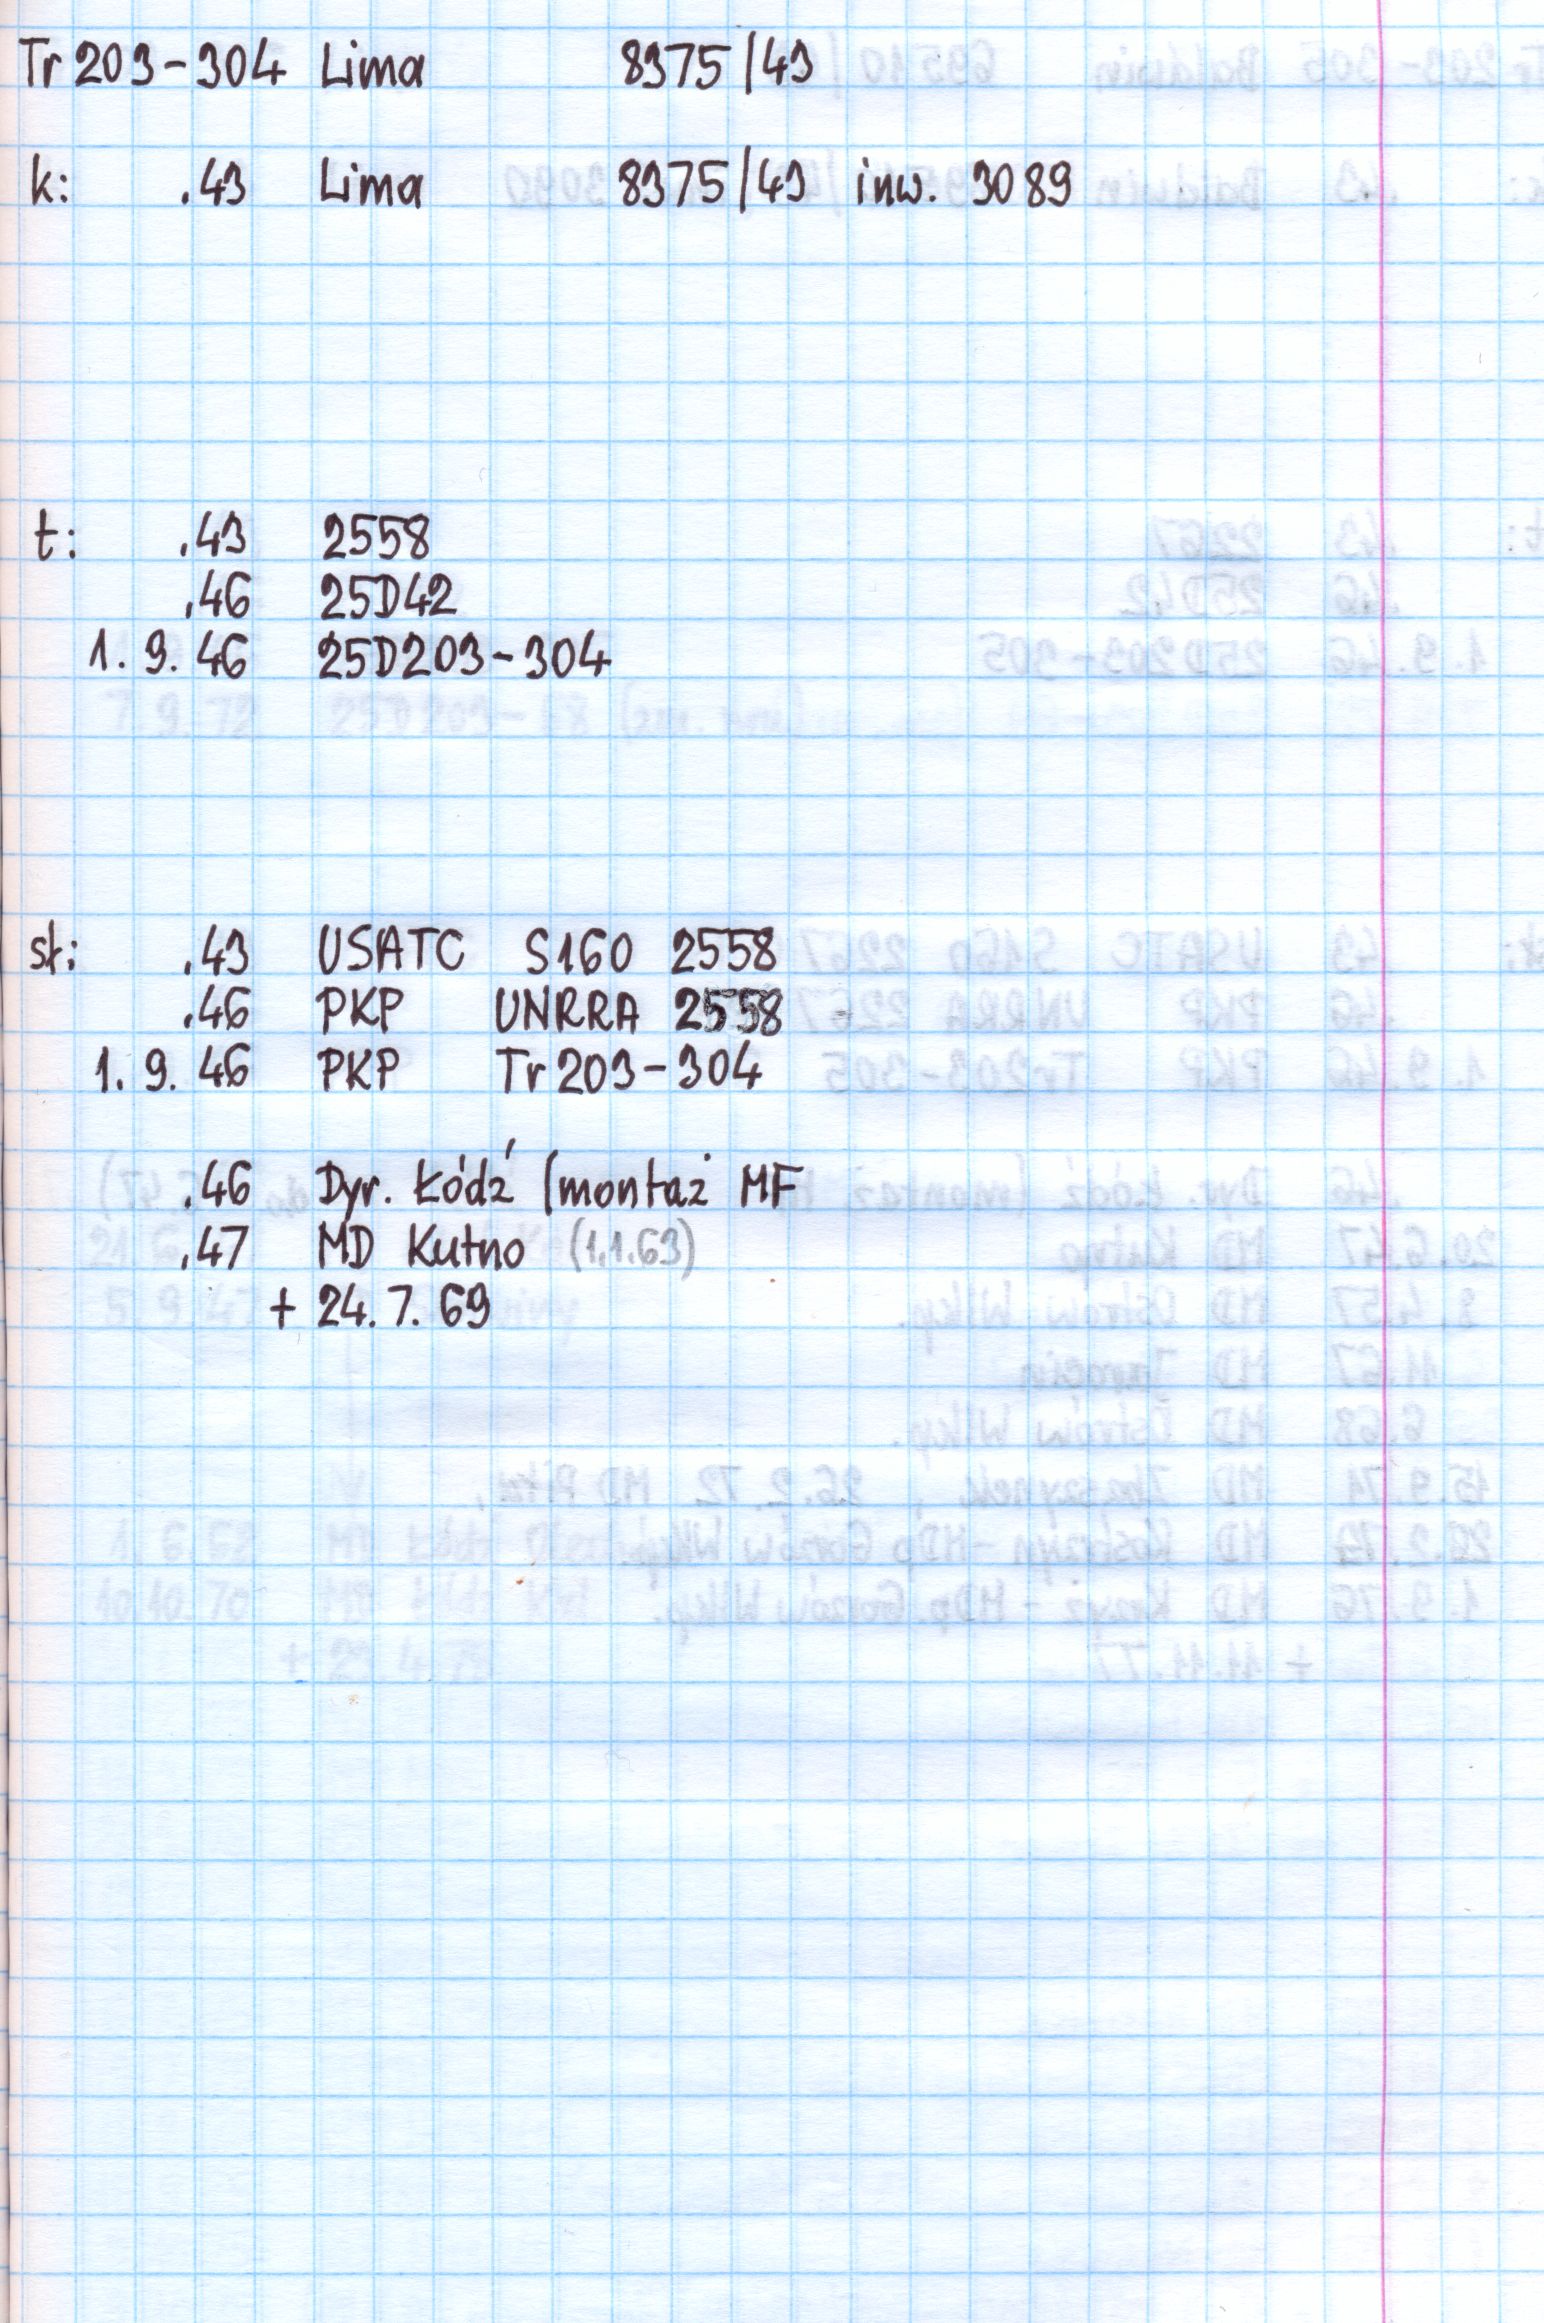 Tr 203-304 Lima 8375/43
k: .43 Lima 8375/43 inw. 3089
t: .43 2558
.46 25D42
1.9.46 25D203-304
st: .43 USATC S160 2558
.46 PKP UNRRA 2558
1.9.46 PKP Tr 203-304
.46 Dyr. Łódź (montaż MF
.47 MD Kutno (1.1.63)
+ 24.7.69